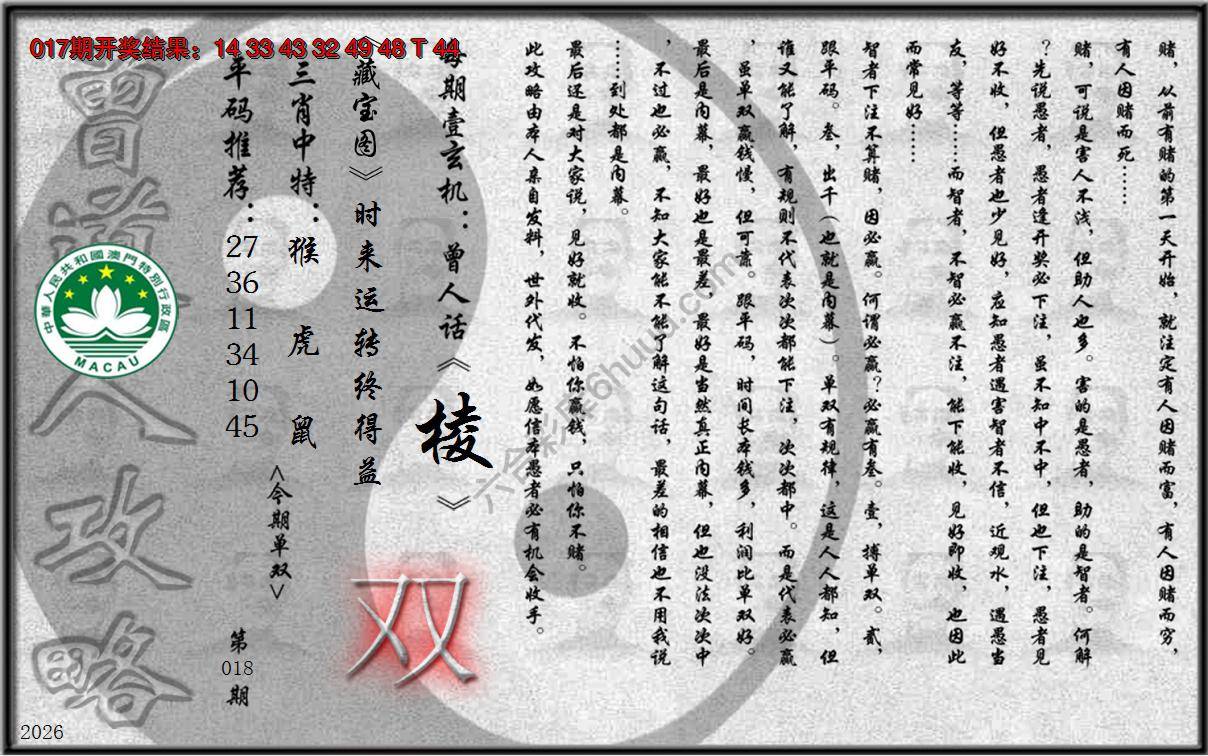 017期开奖结果：14 33 43 32 49 48 T 44
赌，从前有赌的第一天开始，就注定有人因赌而富，有人因赌而穷，
有人因赌而死……
赌，可说是害人不浅，但助人也多。害的是愚者，助的是智者。何解
？先说愚者，愚者逢开奖必下注，虽不知中不中，但也下注，愚者见
好不收，但愚者也少见好，应知愚者遇害智者不信，近观水，遇愚当
友，等等……而智者，不智必赢不注，能下能收，见好即收，也因此
而常见好……
智者下注不算赌，因必赢。何谓必赢？必赢有叁。壹，搏单双。贰，
跟平码。叁，出千（也就是内幕）。单双有规律，这是人人都知，但
谁又能了解，有规则不代表次次都能下注，次次都中。而是代表必赢
，虽单双赢钱慢，但可靠。跟平码，时间长本钱多，利润比单双好。
最后是内幕，最好也是最差，最好是当然真正内幕，但也没法次次中
，不过也必赢，不知大家能不能了解这句话，最差的相信也不用我说
……到处都是内幕。
最后还是对大家说，见好就收。不怕你赢钱，只怕你不赌。
此攻略由本人亲自发料，世外代发，如愿信本愚者必有机会收手。
每期壹玄机：曾人话《棱》
《藏宝图》时来运转终得益
三肖中特：猴 虎 鼠
平码推荐：27 36 11 34 10 45
<今期单双>
双
第018期
曾道人攻略
中華人民共和國澳門特別行政區
MACAU
2026